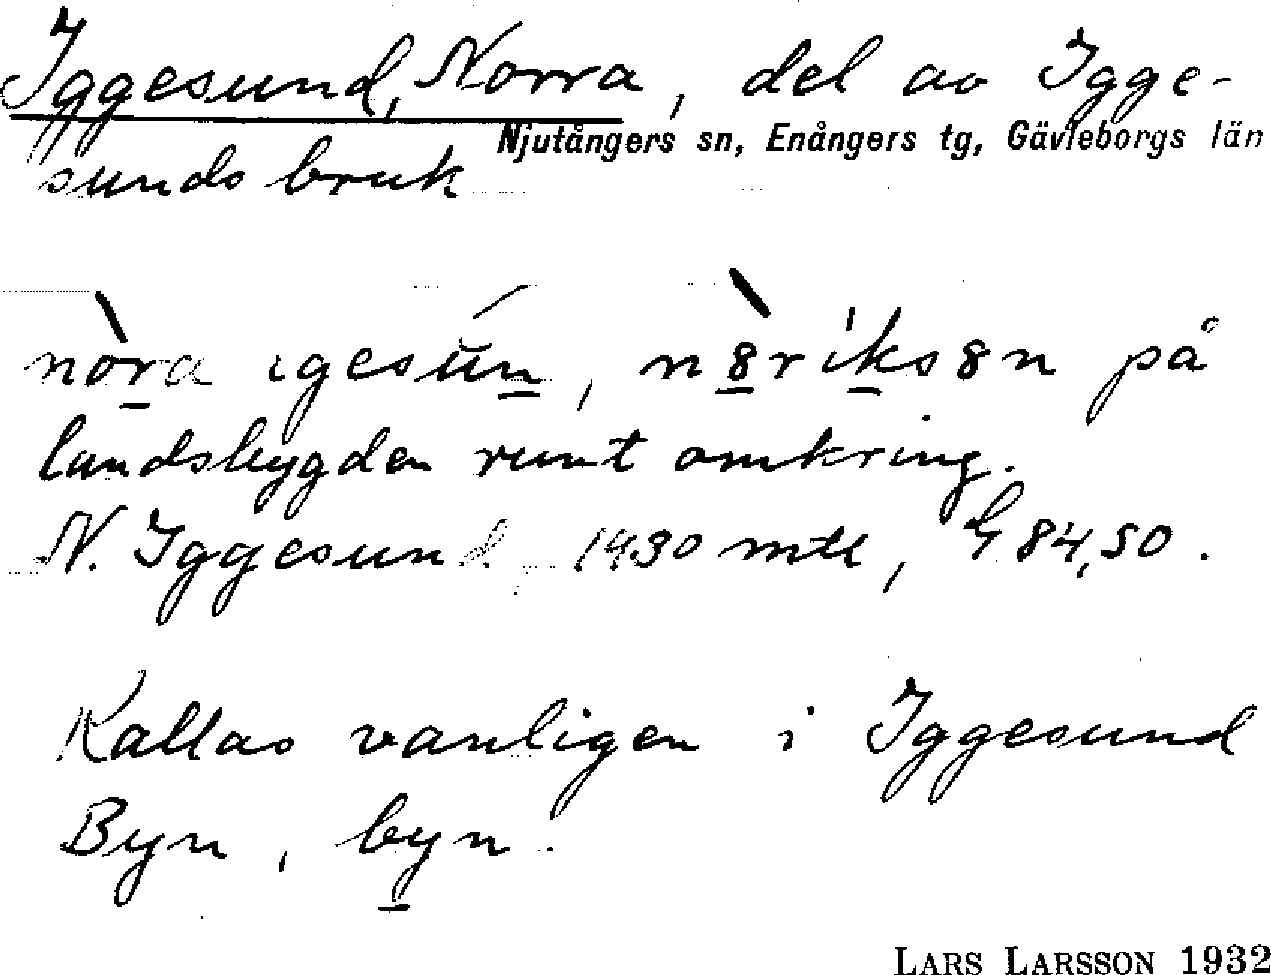 Iggesund, Norra, del av Igge-
Njutångers sn, Enångers tg, Gävleborgs län
sunds bruk
nòra igesún, n8̀riks8n på
landsbygden runt omkring.
N. Iggesund 1930 mtl, 84,50.
Kallas vanligen i Iggesund
Byn, byn.
LARS LARSSON 1932